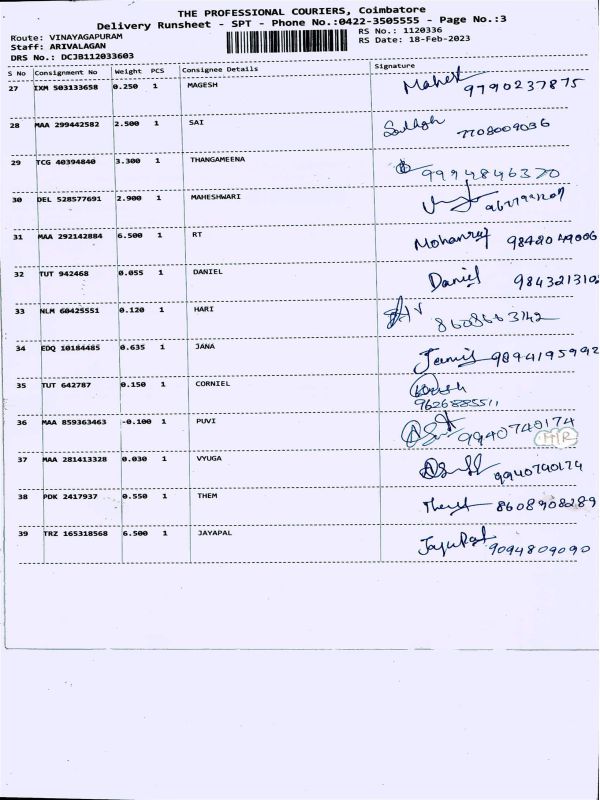 THE PROFESSIONAL COURIERS, Coimbatore
Delivery Runsheet - SPT - Phone No.:0422-3505555 - Page No.:3
Route: VINAYAGAPURAM RS No.: 1120336
Staff: ARIVALAGAN RS Date: 18-Feb-2023
DRS No.: DCJB112033603
S No Consignment No Weight PCS Consignee Details Signature
27 IXM 503133658 0.250 1 MAGESH Mahesh 9790237875
28 MAA 299442582 2.500 1 SAI 7708009036
29 TCG 40394840 3.300 1 THANGAMEENA 9994846370
30 DEL 528577691 2.900 1 MAHESHWARI
31 MAA 292142884 6.500 1 RT Mohanraj 9842049006
32 TUT 942468 0.055 1 DANIEL Daniel 9843213102
33 NLM 60425551 0.120 1 HARI 8608663142
34 EDQ 10184485 0.635 1 JANA 9894195992
35 TUT 642787 0.150 1 CORNIEL
9626885511
36 MAA 859363463 -0.100 1 PUVI 9940740174
MTR
37 MAA 281413328 0.030 1 VYUGA 9940740174
38 PDK 2417937 0.550 1 THEM 8608908289
39 TRZ 165318568 6.500 1 JAYAPAL 9094809090